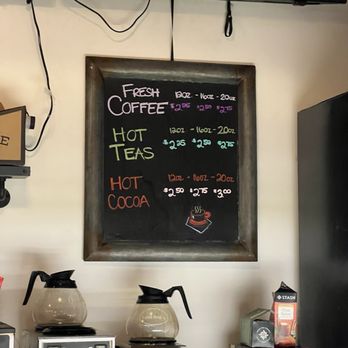 FRESH
COFFEE
12OZ - 16OZ - 20OZ
$2.25 $2.50 $2.75
HOT
TEAS
12OZ - 16OZ - 20OZ
$2.25 $2.50 $2.75
HOT
COCOA
12OZ - 16OZ - 20OZ
$2.50 $2.75 $3.00
STASH